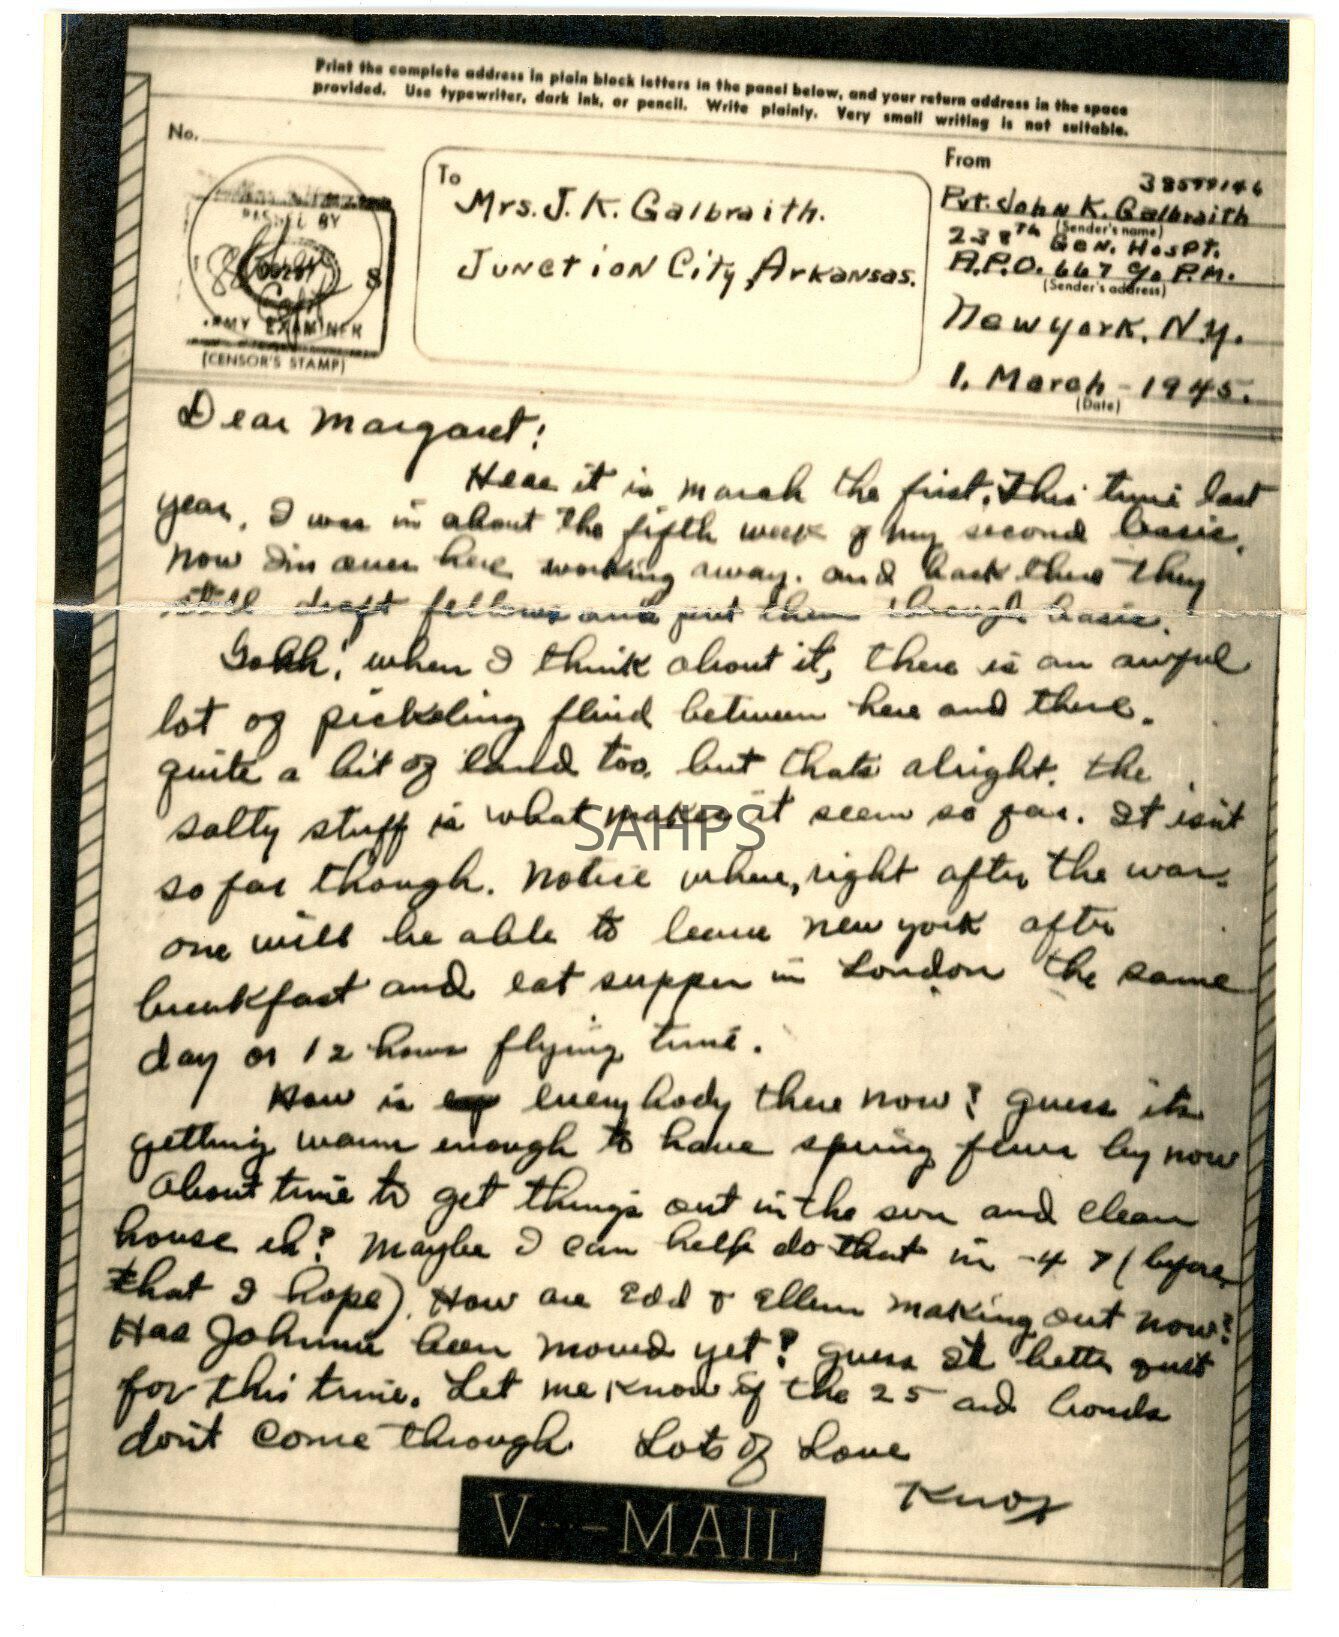 Print the complete address in plain block letters in the panel below, and your return address in the space
provided. Use typewriter, dark ink, or pencil. Write plainly. Very small writing is not suitable.
No.
PASSED BY
ARMY EXAMINER
(CENSOR'S STAMP)
To
Mrs. J. K. Galbraith.
Junction City, Arkansas.
From
Pvt. John K. Galbraith
(Sender's name)
238th Gen. Hospt.
A.P.O. 667 c/o P.M.
(Sender's address)
New york, N.y.
1. March - 1945.
(Date)
Dear Margaret:
Here it is march the first. This time last
year, I was in about the fifth week of my second basic.
now I'm over here working away. and back there they
still draft fellows and put them through basic.
Gohh! when I think about it, there is an awful
lot of pickeling fluid between here and there.
quite a bit of land too, but thats alright. the
salty stuff is what makes it seem so far. It isn't
SAHPS
so far though. notice where, right after the war-
one will be able to leave new york after
breakfast and eat supper in London the same
day or 12 hours flying time.
How is everybody there now? guess its
getting warm enough to have spring fever by now
About time to get things out in the sun and clean
house eh? Maybe I can help do that in -47 (before
that I hope). How are Edd & Ellen making out now?
Has Johnnie been moved yet? guess I'd better quit
for this time. Let me know if the 25 and bonds
don't come through. Lots of Love
Knox
V···-MAIL